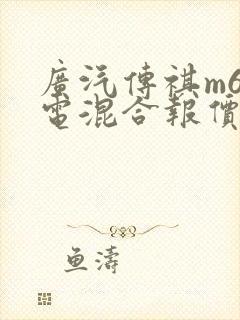 廣汽傳祺m6
電混合報價
魚濤